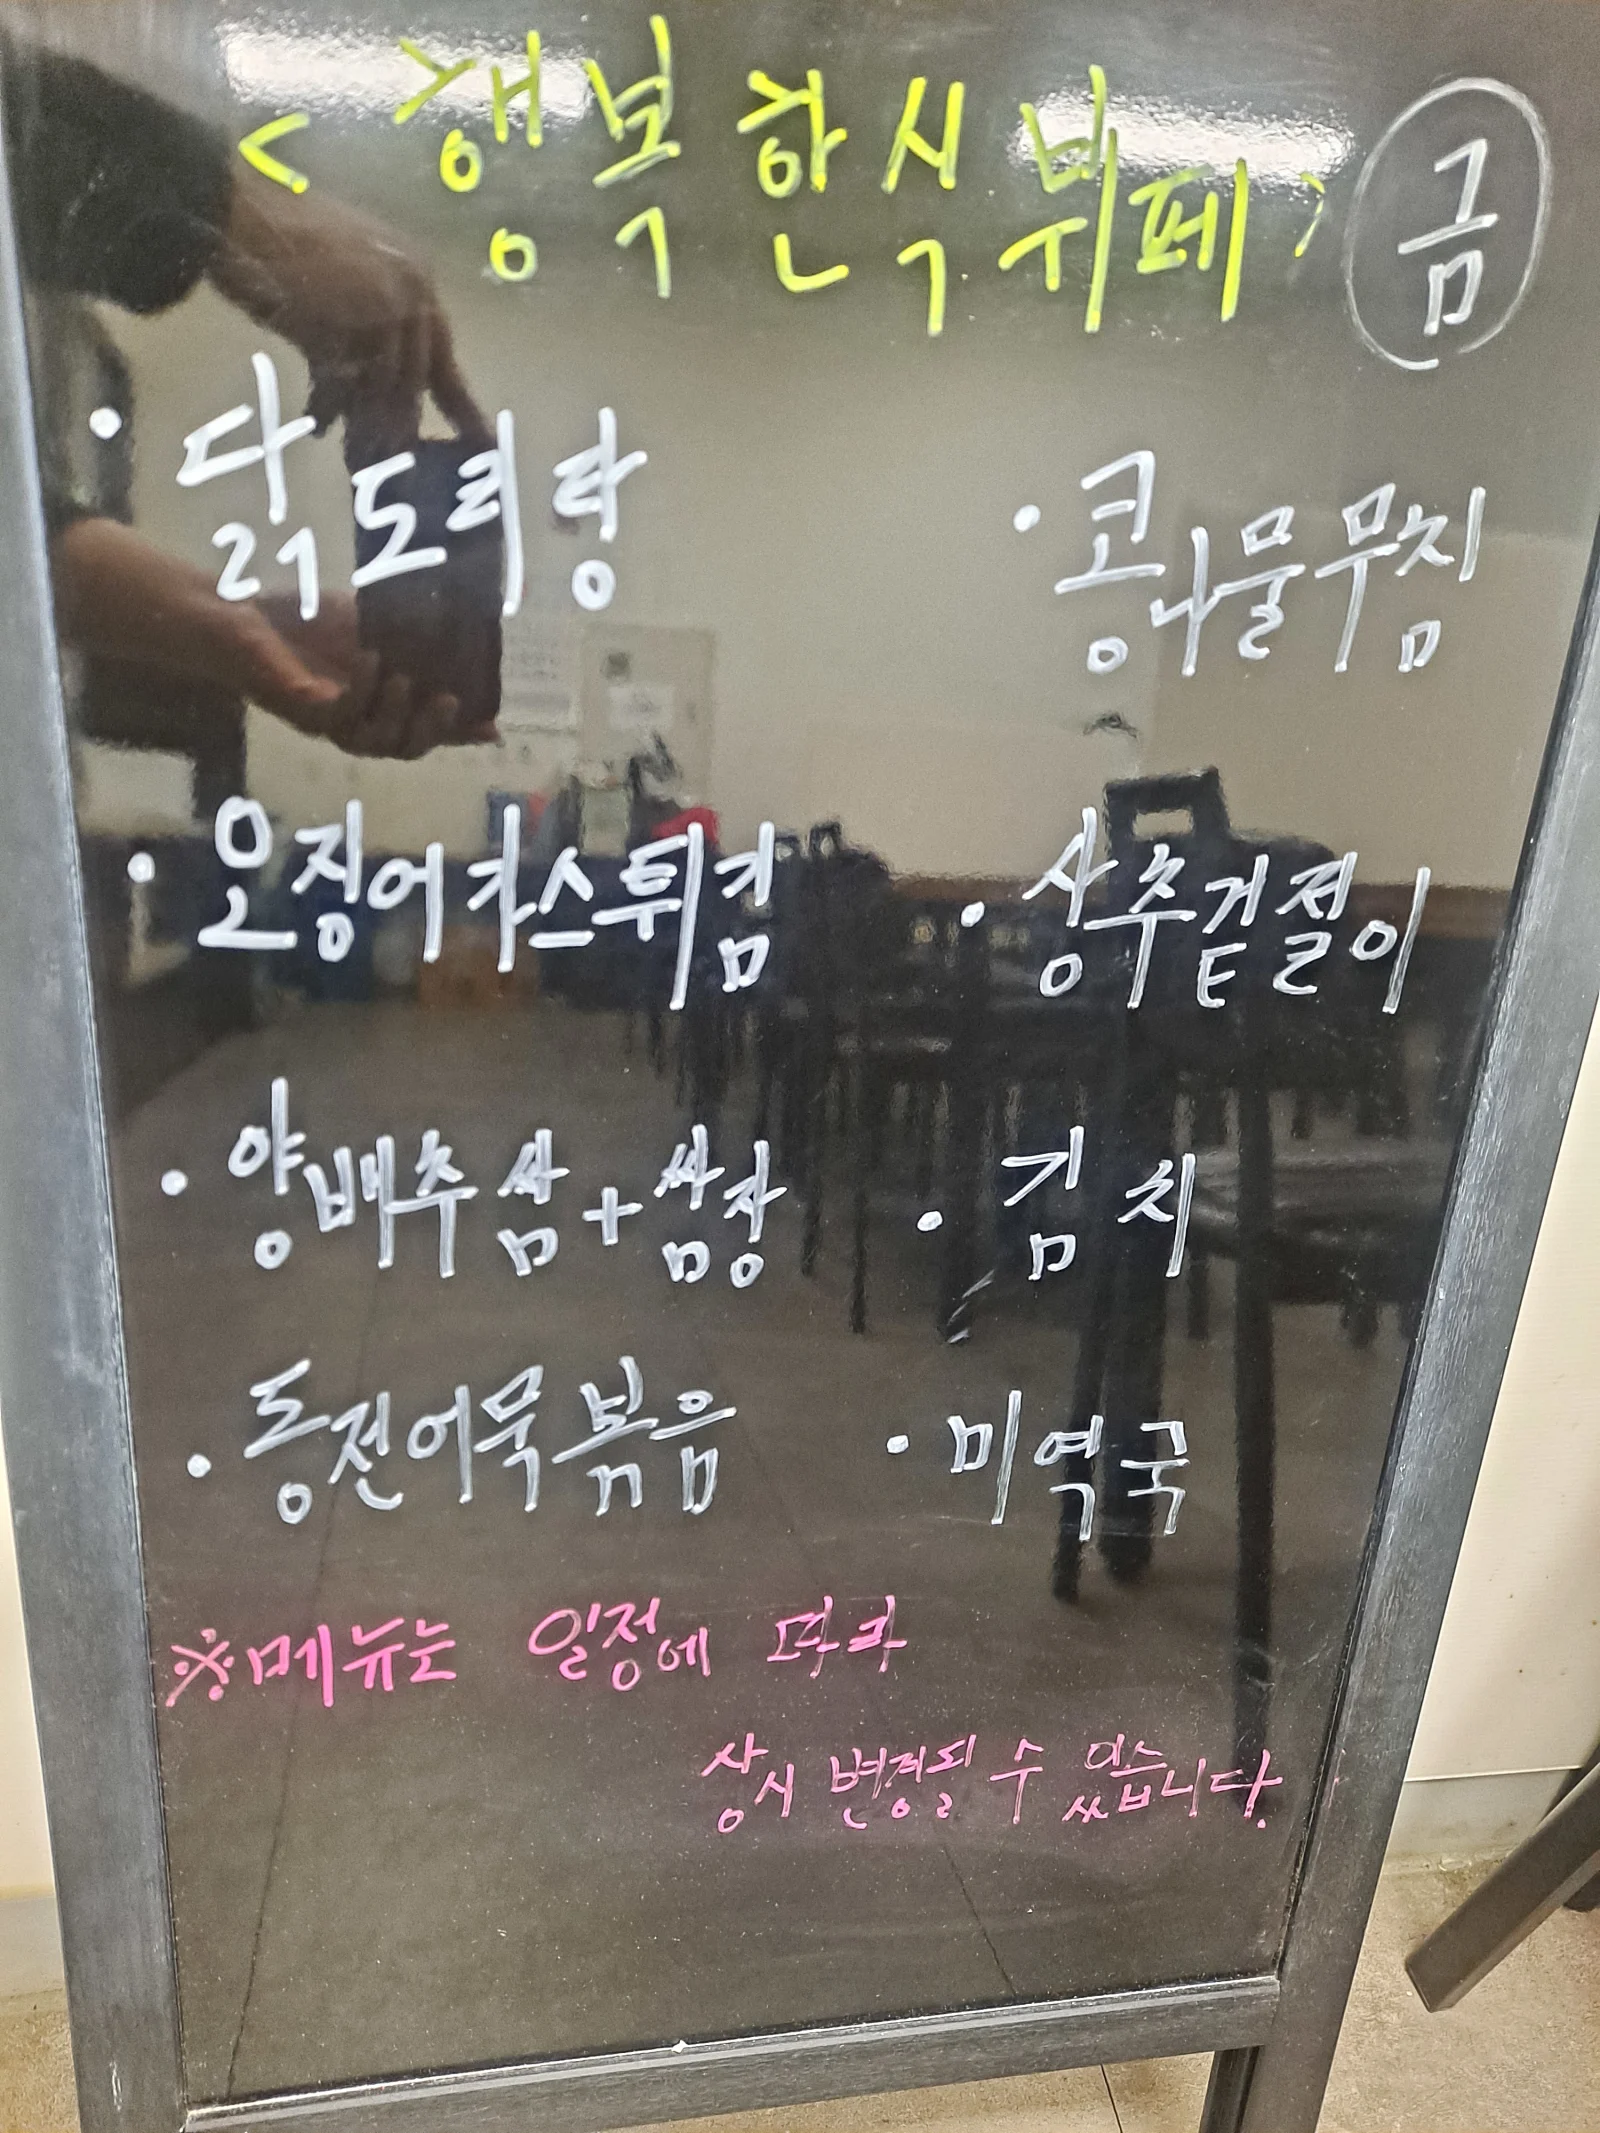 < 행복한식뷔페 > 금
· 닭도리탕
· 콩나물무침
· 오징어카스튀김
· 상추겉절이
· 양배추쌈+쌈장
· 김치
· 동전어묵볶음
· 미역국
※메뉴는 일정에 따라
상시 변경될 수 있습니다.